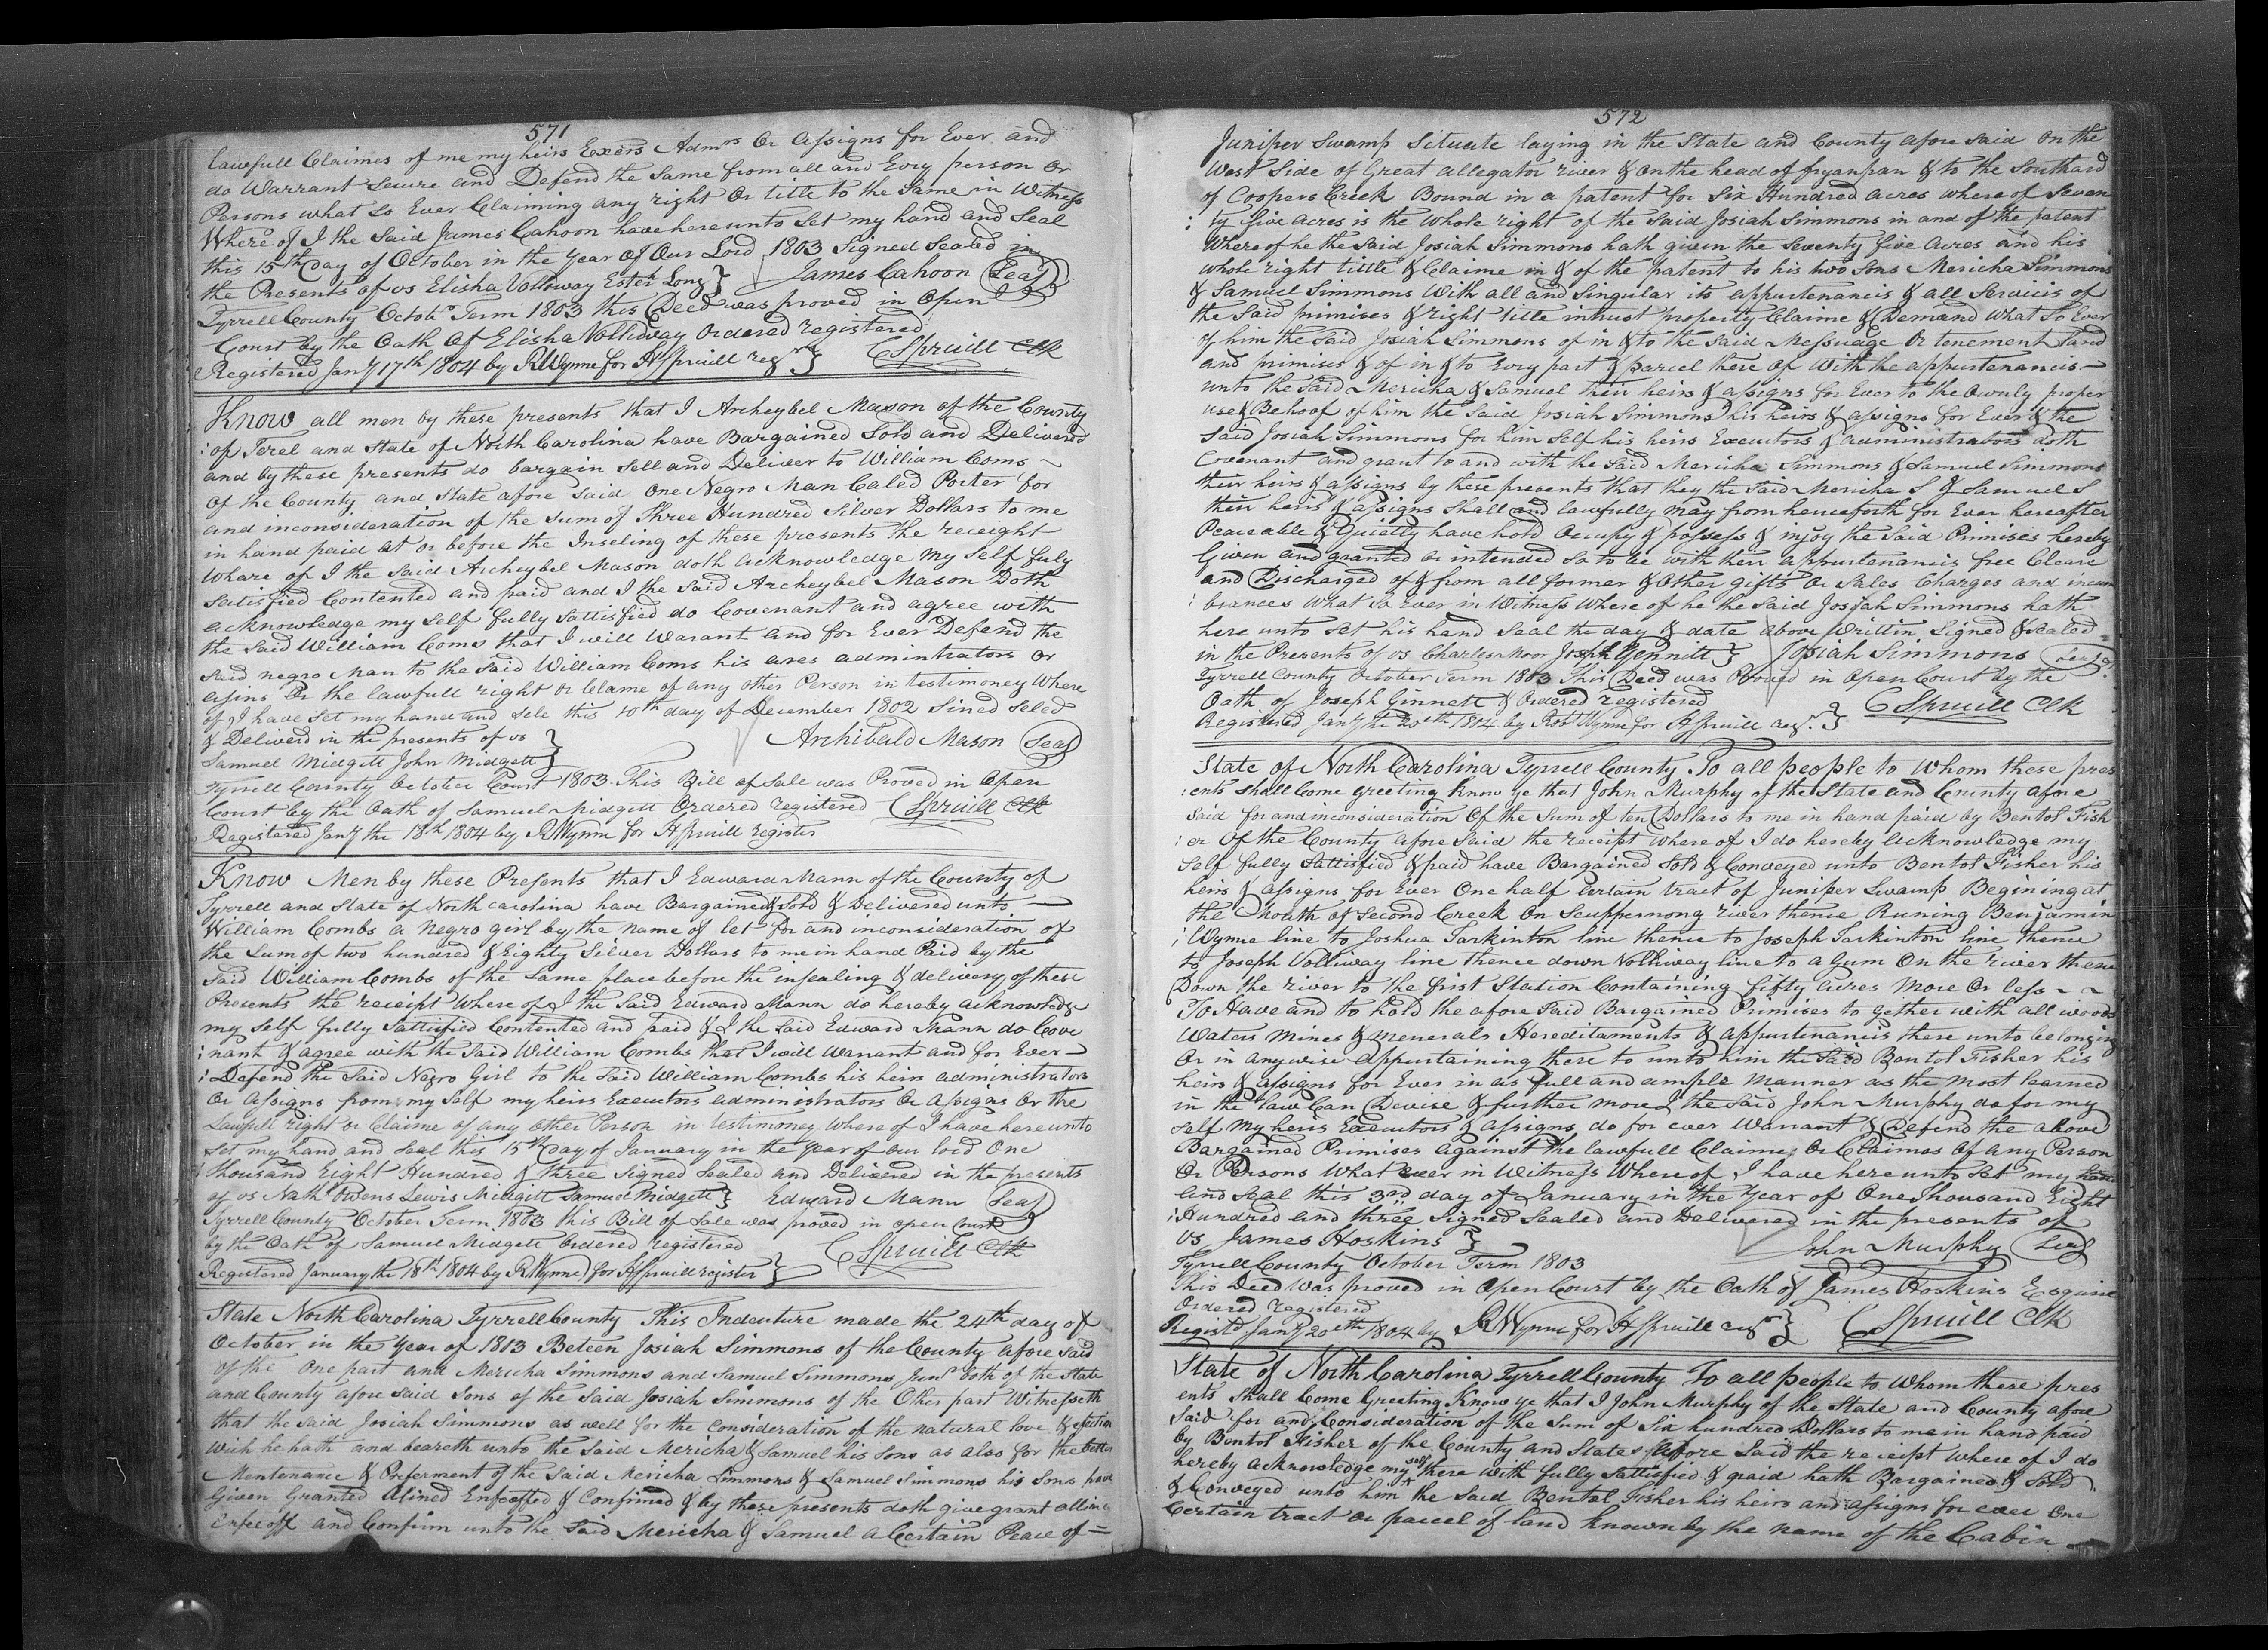 571
lawfull Claimes of me my heirs Exers Admrs Or assigns for Ever and
do Warrant Secure and Defend the Same from all and Evry person Or
Persons what so Ever Claiming any right Or title to the Same in Witness
Where of I the Said James Cahoon have here unto Set my hand and Seal
this 15th day of October in the Year of Our Lord 1803 Signed Sealed in
the Presents of us Elisha Volloway Ester Long } James Cahoon (Seal)
Tyrrell County Octobr Term 1803 this Deed was proved in Open
Court by the Oath Of Elisha Volliway Ordered registered
Registered Jany 17th 1804 by R Wynne for H Spruill regr } C Spruill Clk
Know all men by these presents that I Archeybel Mason of the County
of Terel and State of North Carolina have Bargained Sold and Delivered
and by these presents do bargain Sell and Deliver to William Coms
of the County and State afore Said One Negro Man Caled Porter for
and inconsideration of the Sum of Three Hundred Silver Dollars to me
in hand paid at or before the Inseling of these presents the receight
Whare of I the Said Archeybel Mason doth acknowledge my Self fuly
Satisfied Contented and paid and I the Said Archeybel Mason Doth
acknowledge my Self fully Sattisfied do Covenant and agree with
the Said William Coms that I will Warant and for Ever Defend the
Said negro Man to the Said William Coms his ares admintrators or
asins Or the lawfull right or Clame of any other Person in testimoney Where
of I have Set my hand and Sele this 10th day of December 1802 Sined Seled
& Deliverd in the presents of us } Archibald Mason (Seal)
Samuel Midgett John Midgett }
Tyrrell County October Court 1803. This Bill of Sale was Proved in Open
Court by the Oath of Samuel Midgett Ordered registered C Spruill Clk
Registered Jany the 18th 1804 by R Wynne for H Spruill register
Know Men by these Presents that I Edward Mann of the County of
Tyrrell and State of North carolina have Bargained & Sold & Delivered unto
William Combs a Negro girl by the name of let for and inconsideration of
the Sum of two hundred & Eighty Silver Dollars to me in hand Paid by the
Said William Combs of the Same place before the insealing & delivery of these
Presents the receipt Where of I the Said Edward Mann do hereby acknowledge
my Self fully Sattisfied Contented and paid & I the Said Edward Mann do Cove
nant & agree with the Said William Combs that I will Warrant and for Ever
Defend the Said Negro Girl to the Said William Combs his heirs administrators
Or assigns from my Self my heirs Executors administrators Or assigns Or the
Lawfull right or Claime of any other Person in testimoney Where of I have here unto
Set my hand and Seal this 15th day of January in the year of our lord One
thousand Eight Hundred & three Signed Sealed and Delivered in the presents
of us Nathl Owens Lewis Midgett Samuel Midgett } Edward Mann (Seal)
Tyrrell County October Term 1803 this Bill of Sale was proved in open Court
by the Oath of Samuel Midgett Ordered registered C Spruill Clk
Registered January the 18th 1804 by R Wynne for H Spruill register }
State North Carolina Tyrrell County This Indenture made the 24th day of
October in the Year of 1803 Beteen Josiah Simmons of the County afore Said
of the One part and Mericha Simmons and Samuel Simmons Junr both of the State
and County afore Said Sons of the Said Josiah Simmons of the Other part Witnesseth
that the Said Josiah Simmons as well for the Consideration of the natural love & afection
Wich he hath and beareth unto the Said Mericha & Samuel his Sons as also for the better
Mentenance & Preferment of the Said Mericha Simmons & Samuel Simmons his Sons have
Given Granted Alined Enfeoffed & Confirmed & by these presents doth give grant alline
Enfeeoff and Confirm unto the Said Mericha & Samuel a Certain Peace of
572
Juniper Swamp Situate laying in the State and County afore Said On the
West Side of Great allegator river & On the head of fryanpan & to the Southard
of Coopers Creek Bound in a patent for Six Hundred acres where of Seven
ty five acres is the Whole right of the Said Josiah Simmons in and of the patent
Where of he the Said Josiah Simmons hath given the Seventy five acres and his
whole right tittle & Claime in & of the patent to his two Sons Mericha Simmons
& Samuel Simmons With all and Singular its appurtenancis & all Servicis of
the Said primises & right title intrust property Claime & Demand What So Ever
of him the Said Josiah Simmons of in & to the Said Messuage Or tenement Land
and primises & of in & to Evry part & parcel there of With the appurtenancis
unto the Said Mericha & Samuel their heirs & assigns for Ever to the Ownly proper
use & Behoof of him the Said Josiah Simmons his heirs & assigns for Ever & the
Said Josiah Simmons for him Self his heirs Executors & administrators doth
Covenant and grant to and with the Said Mericha Simmons & Samuel Simmons
their heirs & assigns by these presents that they the Said Mericha S & Samuel S
their heirs & assigns Shall and lawfully may from henceforth for Ever hereafter
Peaceable & Quietly have hold Occupy & possess & injoy the Said Primises hereby
Given and granted or intended So to be with their appurtenancis free Cleare
and Discharged of & from all former & Other gifts Or Sales Charges and incum
brances What So Ever in Witness Where of he the Said Josiah Simmons hath
here unto Set his hand Seal the day & date above Writtin Signed & Sealed
in the Presents of us Charles Moor Joseph Ginnitt } Josiah Simmons (Seal)
Tyrrell County October Term 1803 This Deed was Proved in Open Court by the
Oath of Joseph Ginnett & Ordered registered C Spruill Clk
Registered Jany the 20th 1804 by Robt Wynne for H Spruill regr. }
State of North Carolina Tyrrell County To all people to Whom these pres
ents Shall Come greeting Know ye that John Murphy of the State and County afore
Said for and inconsideration Of the Sum of ten Dollars to me in hand paid by Bentol Fish
er Of the County afore Said the receipt Where of I do hereby acknowledge my
Self fully Sattisfied & paid have Bargained Sold & Conveyed unto Bentol Fisher his
heirs & assigns for Ever One half Certain tract of Juniper Swamp Begining at
the Mouth of Second Creek On Scuppernong river thence Runing Benjamin
Wynne line to Joshua Tarkinton line thence to Joseph Tarkinton line thence
to Joseph Volliway line thence down Volliway line to a Gum On the river thence
Down the river to the first Station Containing fifty acres More Or less
To Have and to hold the afore Said Bargained Primises to gether with all woods
Waters Mines & Menerals Hereditaments & appurtenancis there unto belonging
Or in anywise Appurtaining there to unto him the Said Bentol Fisher his
heirs & assigns for Ever in as full and ample Manner as the Most learned
in the law Can Devise & further more I the Said John Murphy do for my
Self My heirs Executors & assigns do for ever Warrant & Defend the above
Bargained Primises against the lawfull Claime Or Claimes of any Person
Or Persons What ever in Witness Where of I have here unto Set my hand
and Seal this 3rd day of January in the Year of One Thousand Eight
Hundred and three Signed Sealed and Delivered in the presents of
us James Hoskins } John Murphy (Seal)
Tyrrell County October Term 1803
This Deed Was proved in Open Court by the Oath of James Hoskins Esquire
Ordered registered
Registd Jany 20th 1804 by R Wynne for H Spruill regr } C Spruill Clk
State of North Carolina Tyrrell County To all people to Whom these pres
ents Shall Come Greeting Know ye that I John Murphy of the State and County afore
Said for and Consideration of the Sum of Six hundred Dollars to me in hand paid
by Bentol Fisher of the County and State afore Said the receipt Where of I do
hereby acknowledge my self there with fully Sattisfied & paid hath Bargained & Sold
& Conveyed unto him the Said Bentol Fisher his heirs and assigns for ever One
Certain tract or parcel of land known by the name of the Cabin